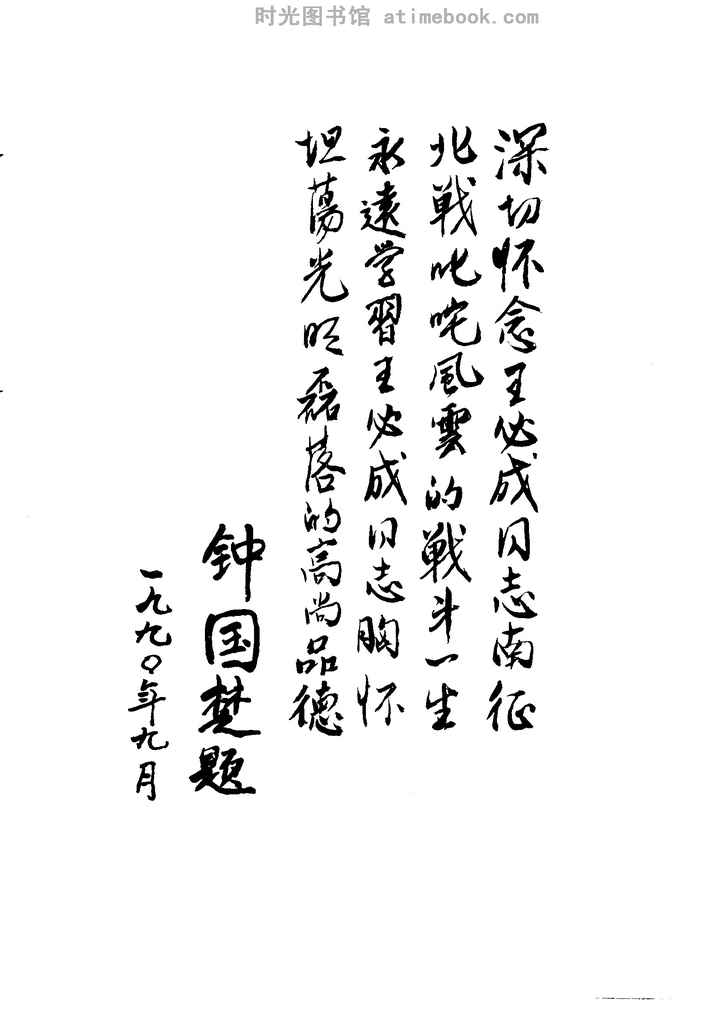 时光图书馆 atimebook.com
深切怀念王必成同志南征
北战叱咤風雲的戦斗一生
永遠学習王必成同志胸怀
坦蕩光明磊落的高尚品德
钟国楚题
一九九〇年九月